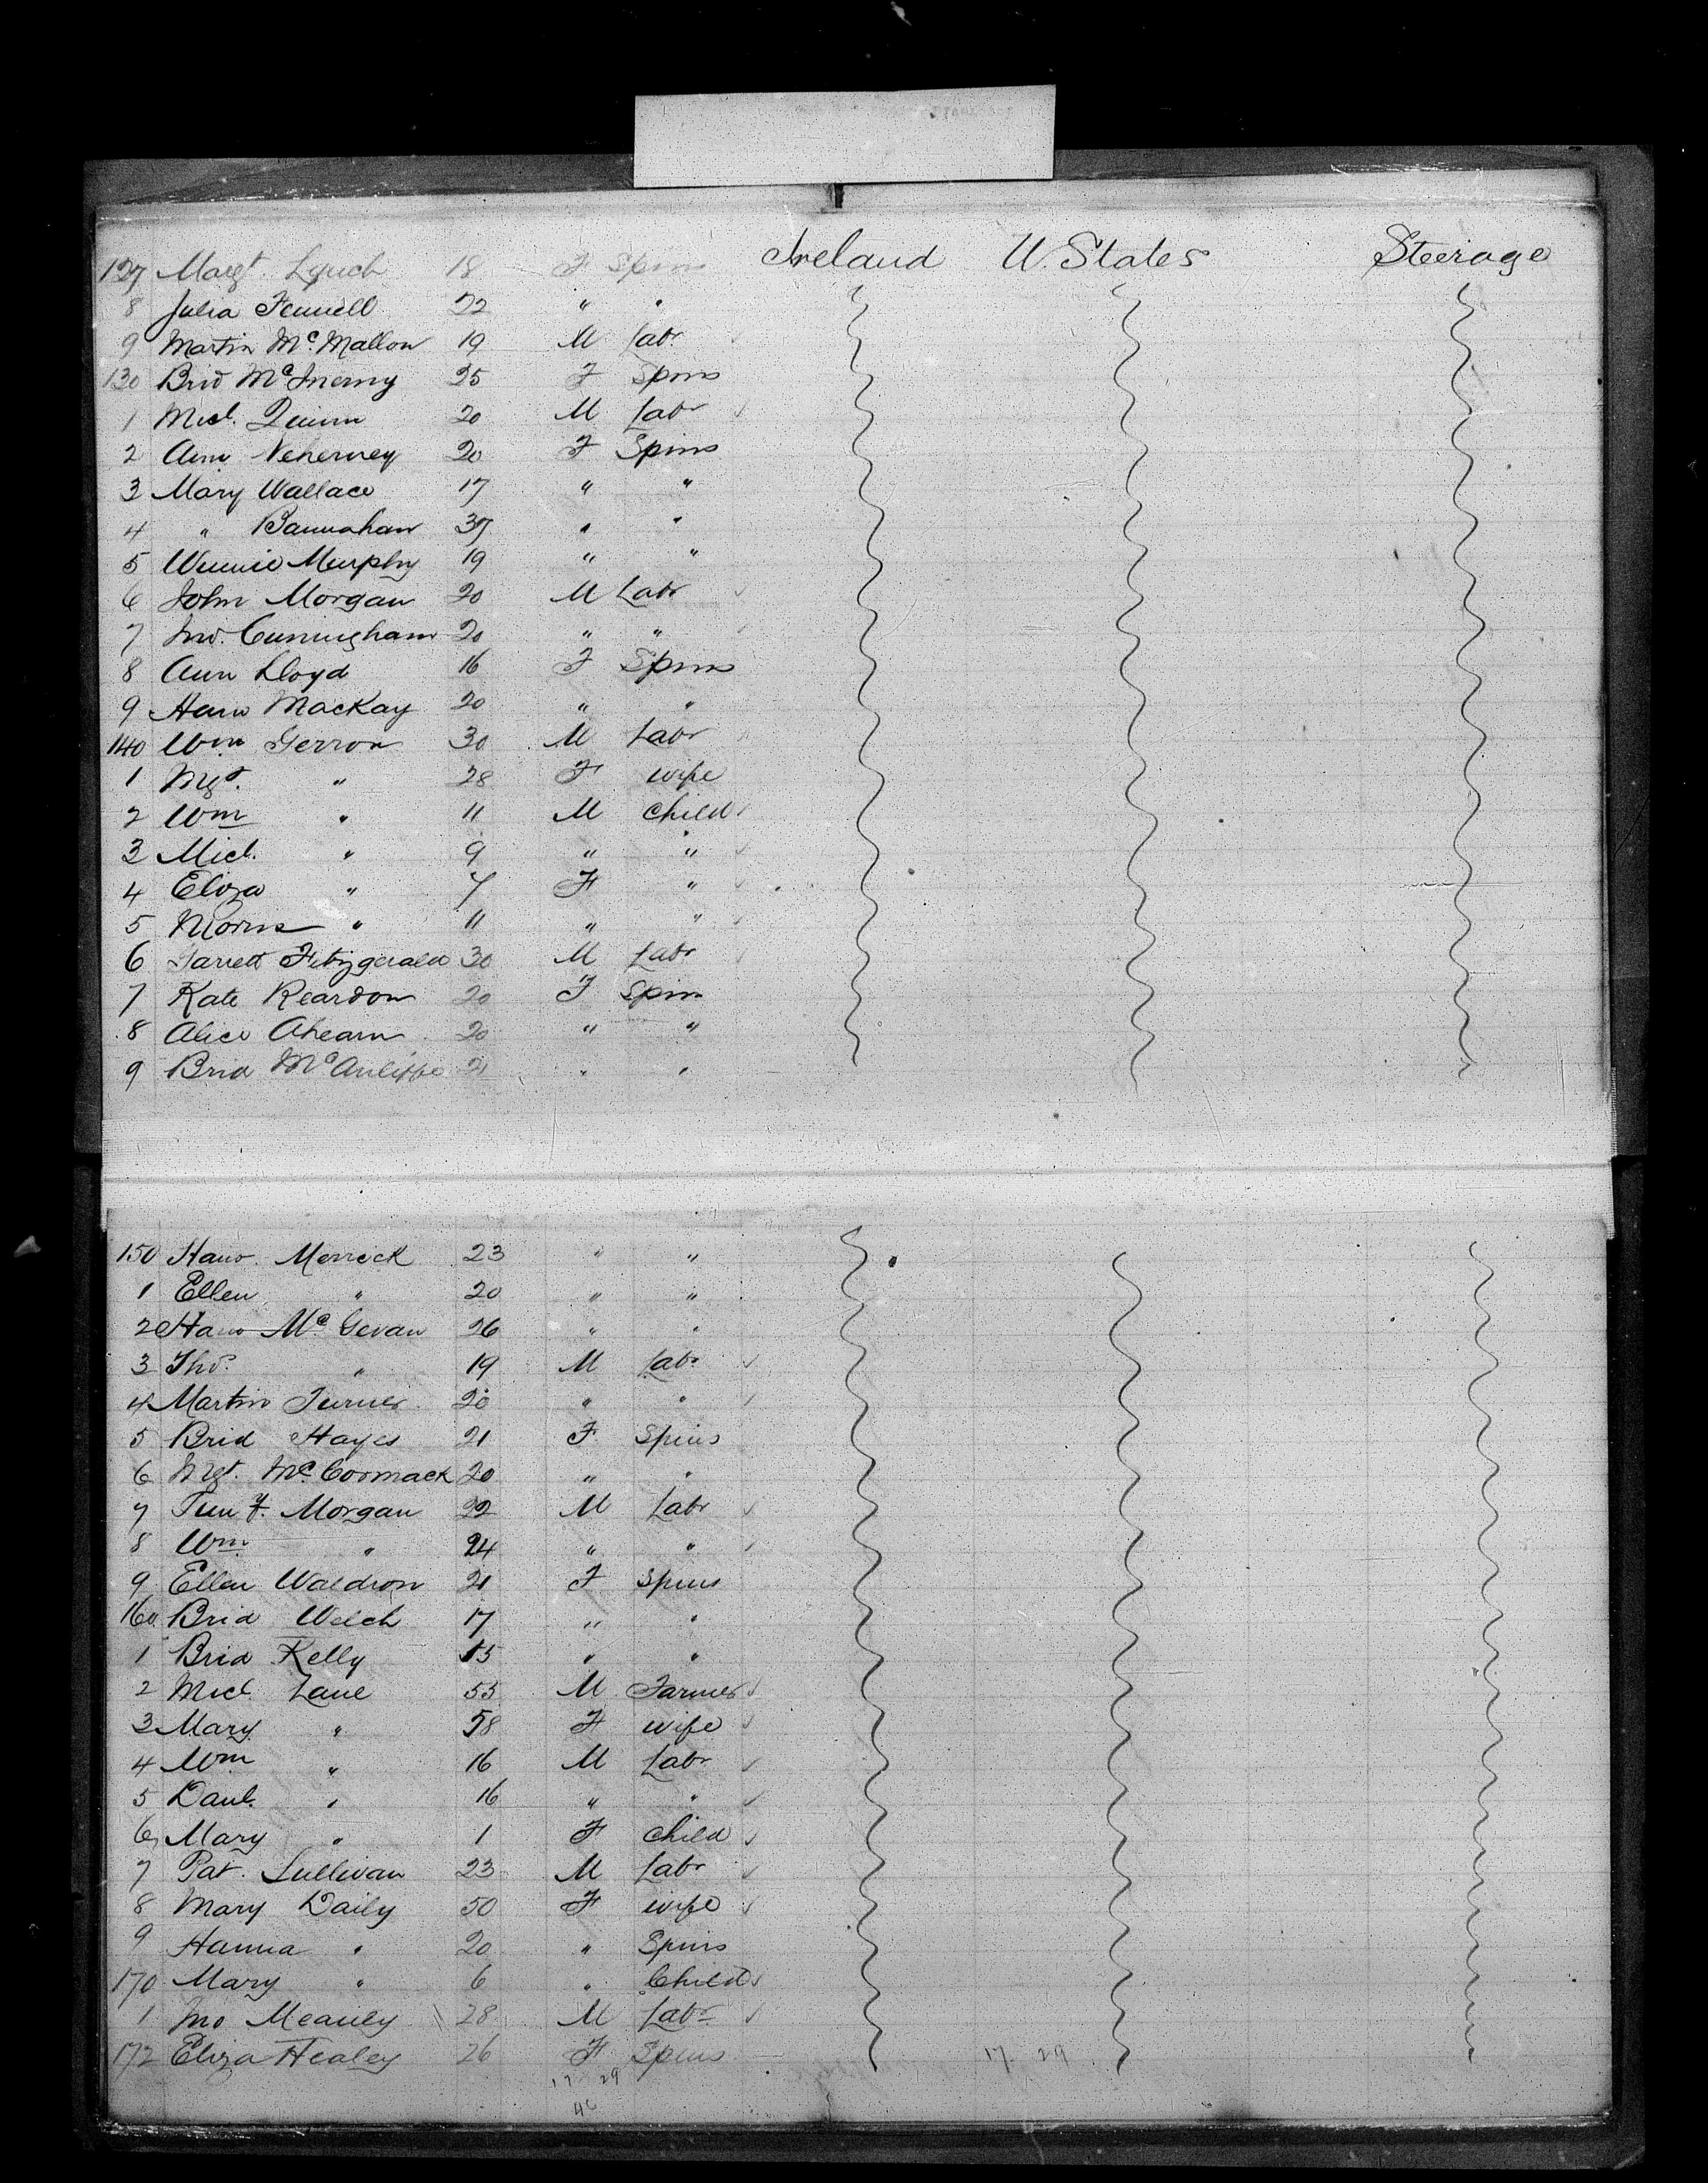 127 Margt. Lynch 18 F Spins Ireland U. States Steerage
8 Julia Fennell 22 " "
9 Martin McMallon 19 M Labr
130 Brid McInerny 25 F Spins
1 Micl. Quinn 20 M Labr ✓
2 Ann Neherney 20 F Spins
3 Mary Wallace 17 " "
4 " Bannahan 37 " "
5 Winnie Murphy 19 " "
6 John Morgan 20 M Labr ✓
7 Jno. Cuningham 20 " "
8 Ann Lloyd 16 F Spins
9 Hano MacKay 20 " "
140 Wm Gerron 30 M Labr
1 Mgt. " 28 F wife
2 Wm " 11 M Child ✓
3 Micl. " 9 " " ✓
4 Eliza " 7 F " ✓
5 Morris " 11 " " ✓
6 Garrett Fitzgerald 30 M Labr ✓
7 Kate Reardon 20 F Spins
8 Alice Ahearn 20 " "
9 Brid McAuliffe 21 " "
150 Hano. Merrick 23 " "
1 Ellen " 20 " "
2 Hano McGevan 26 " "
3 Tho. " 19 M Labr ✓
4 Martin Turner 20 " " ✓
5 Brid Hayes 21 F Spins
6 Mgt. McCormack 20 " "
7 F. Morgan 22 M Labr ✓
8 Wm " 24 " " ✓
9 Ellen Waldron 21 F Spins
160 Brid Welch 17 " "
1 Brid Kelly 15 " "
2 Micl. Lane 55 M Farmer ✓
3 Mary " 58 F wife ✓
4 Wm " 16 M Labr ✓
5 Danl. " 16 " " ✓
6 Mary " 1 F Child ✓
7 Pat. Sullivan 23 M Labr ✓
8 Mary Daily 50 F wife ✓
9 Hanna " 20 " Spins
170 Mary " 6 " Child ✓
1 Jno Meaney 28 M Labr ✓
172 Eliza Healey 26 F Spins 17 29
17 29